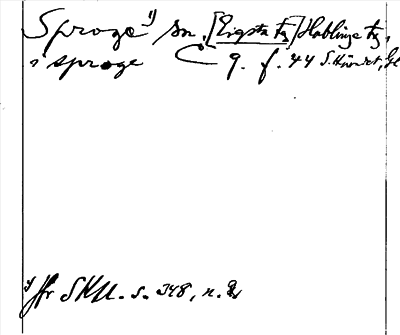 Sproge 1) sn. [Eigsta tg] Hablinge tg,
i sproge q. f. 44 S. Härdet, Gl
1) jfr SRU. s. 348, n.